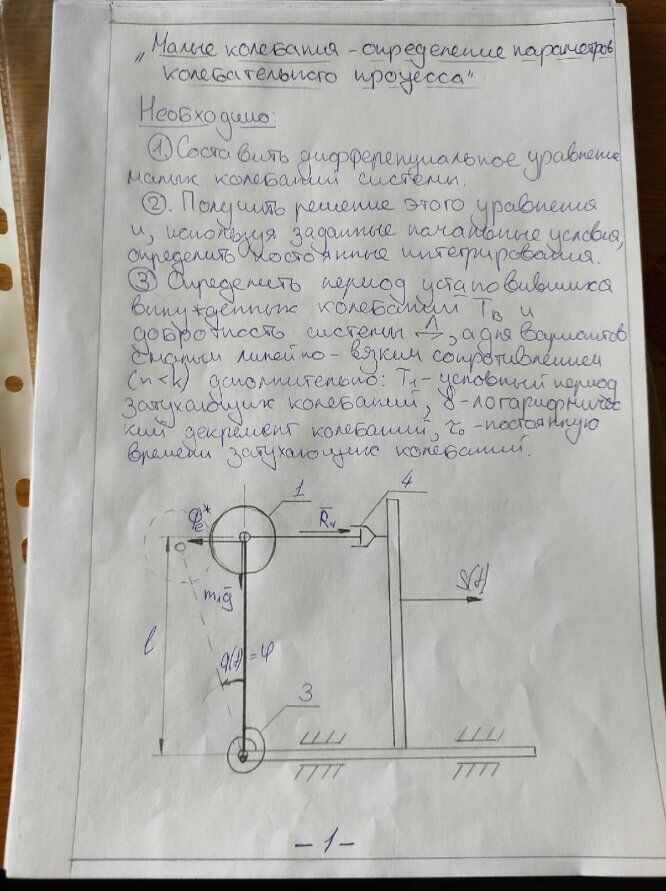 „Малые колебания – определение параметров
колебательного процесса"
Необходимо:
① Составить дифференциальное уравнение
малых колебаний системы.
②. Получить решение этого уравнения
и, используя заданные начальные условия,
определить постоянные интегрирования.
③ Определить период установившихся
вынужденных колебаний Tв и
добротность системы Λ, а для вариантов
с малым линейно-вязким сопротивлением
(n<k) дополнительно: T1 – условный период
затухающих колебаний, δ – логарифмичес
кий декремент колебаний, τ0 – постоянную
времени затухающих колебаний.
1 4
Φe* R4
S(t)
m1g
l
q(t) = φ
3
– 1 –